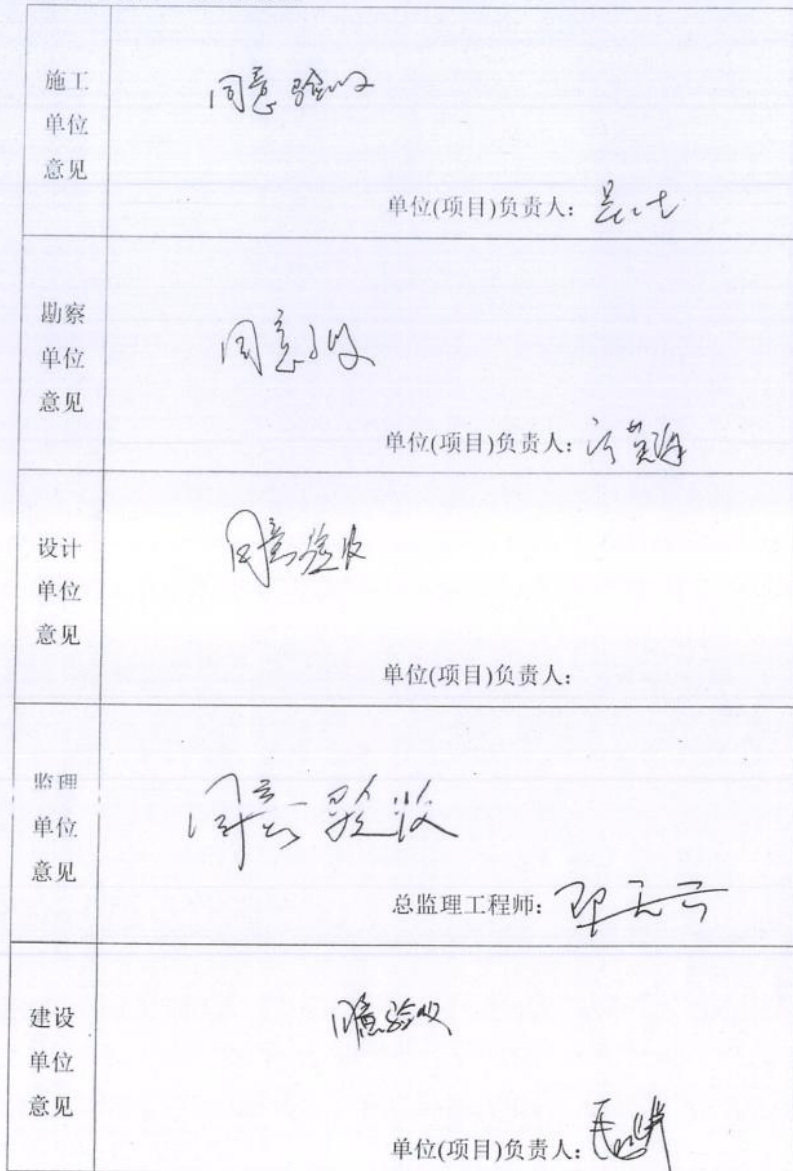 施工
单位
意见
同意验收
单位(项目)负责人:
勘察
单位
意见
同意验收
单位(项目)负责人:
设计
单位
意见
同意验收
单位(项目)负责人:
监理
单位
意见
同意验收
总监理工程师:
建设
单位
意见
同意验收
单位(项目)负责人: